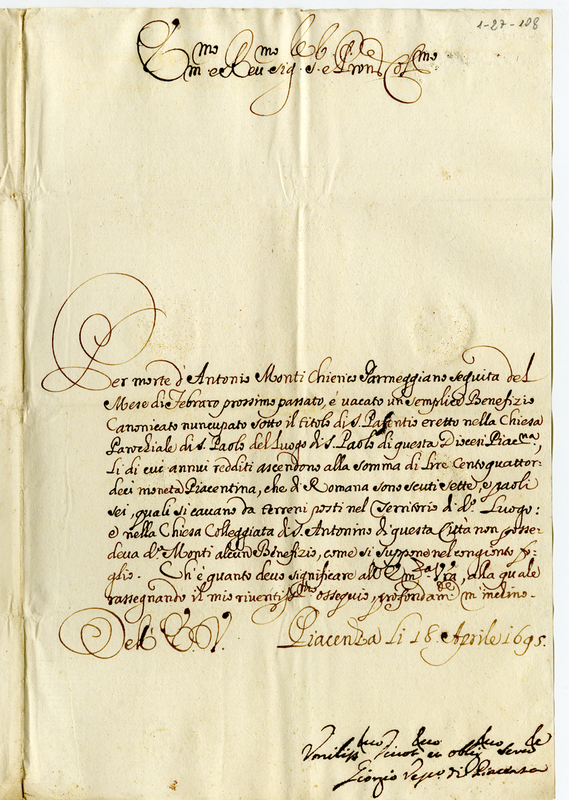 1-27-108
Em.mo e Reu.mo Sig.r e Pron Col.mo
Per morte d'Antonio Monti Chierico Parmeggiano seguita del
Mese di Febraro prossimo passato, è vacato un semplice Benefizio
Canonicato nuncupato sotto il titolo di S. eretto nella Chiesa
Parochiale di S. Paolo del Luogo di S. Paolo di questa Diocesi Piac.na,
li di cui annui redditi ascendono alla somma di lire Centoquattor:
deci moneta Piacentina, che di Romana sono scuti sette, e paoli
sei, quali si cauano da terreni posti nel Territorio di d.o Luogo:
e nella Chiesa Colleggiata di S. Antonino di questa Città non posse:
deua d.o Monti alcun Benefizio, come si suppone nel congionto fo:
glio. Ch'è quanto deuo significare all' Em.za V.ra, alla quale
rassegnando il mio riuentiss.mo ossequio, profondam.te m'inclino.
Dell' E. V. Piacenza li 18 Aprile 1695.
Vmiliss.mo Diuot.mo et oblig.mo Seruo
Giorgio Vesco di Piacenza